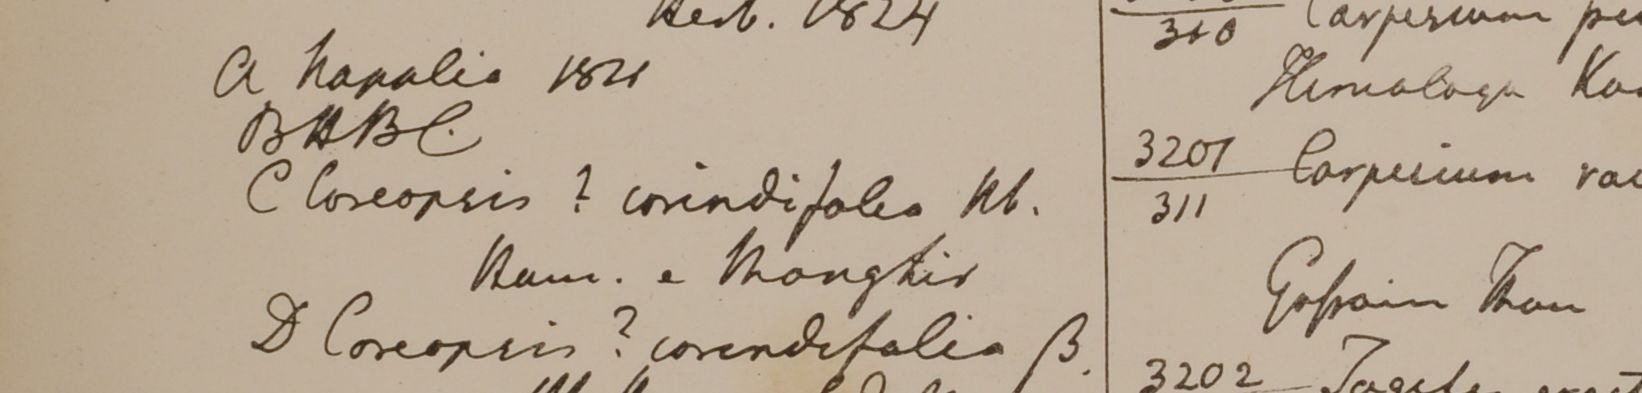 Herb. 1824
A Napalia 1821
B H B C.
C Coreopsis ? corindifolia Hb.
Ham. e Monghir
D Coreopsis ? corindifolia β.
310 Carpesium
Himalaya
3201 Carpesium
311
Gossain Than
3202 Tagetes